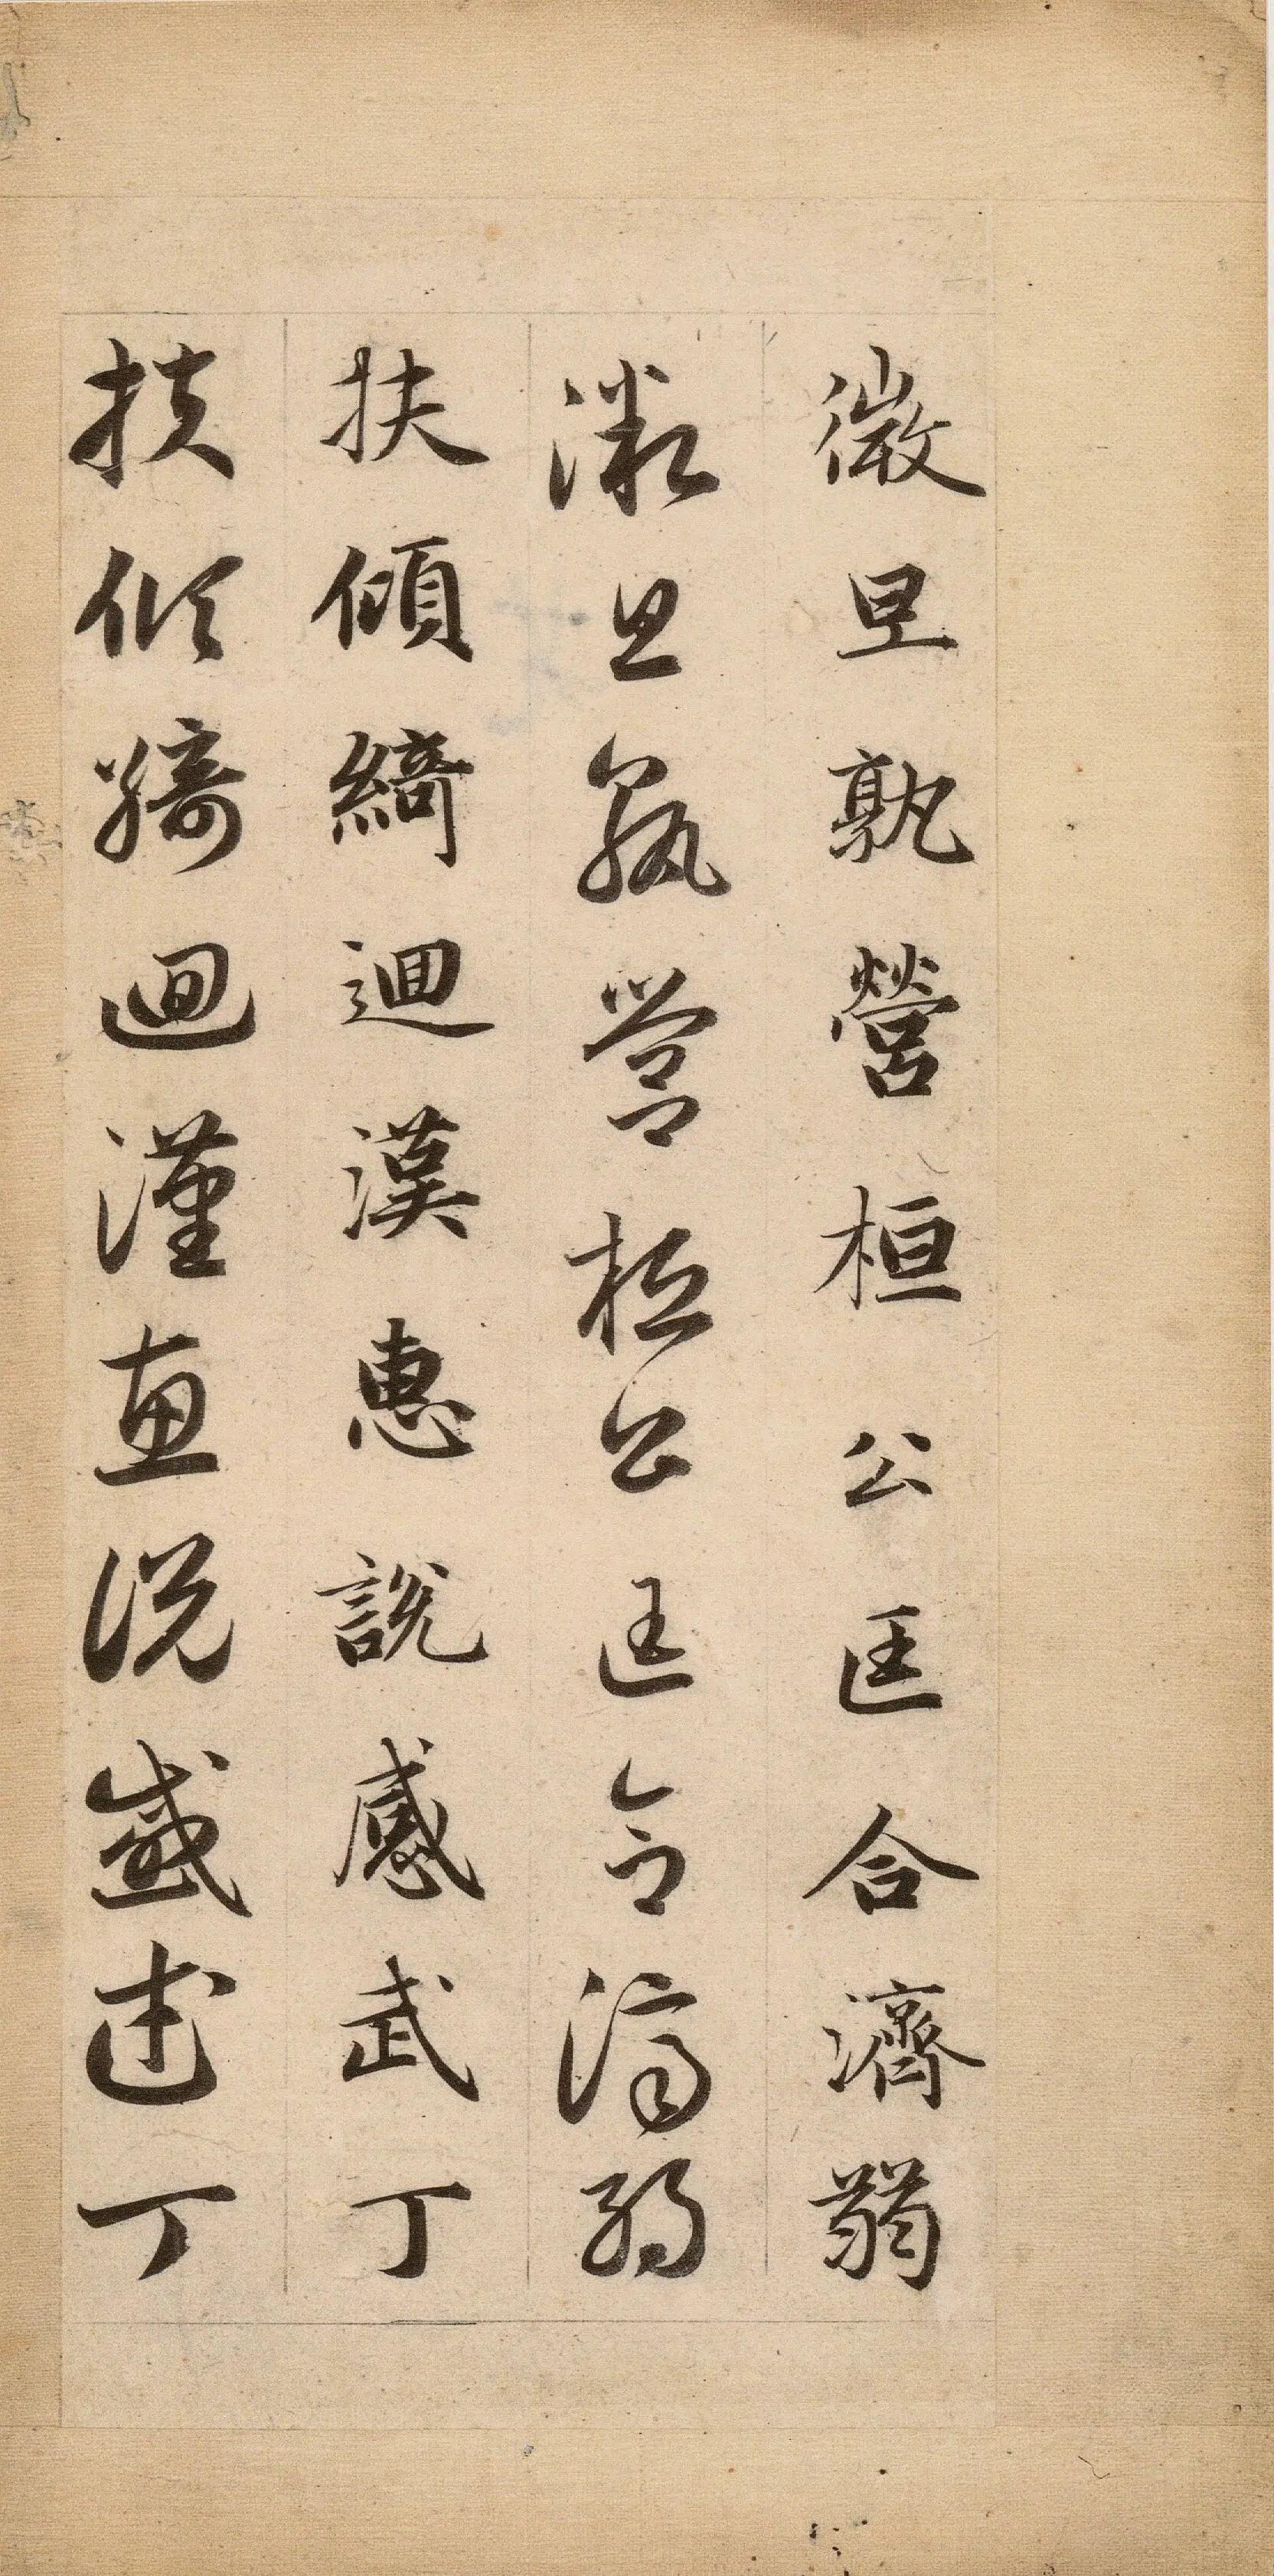 微旦孰營桓公匡合濟弱
微旦孰營桓公匡合濟弱
扶傾綺迴漢惠說感武丁
扶傾綺迴漢惠說感武丁